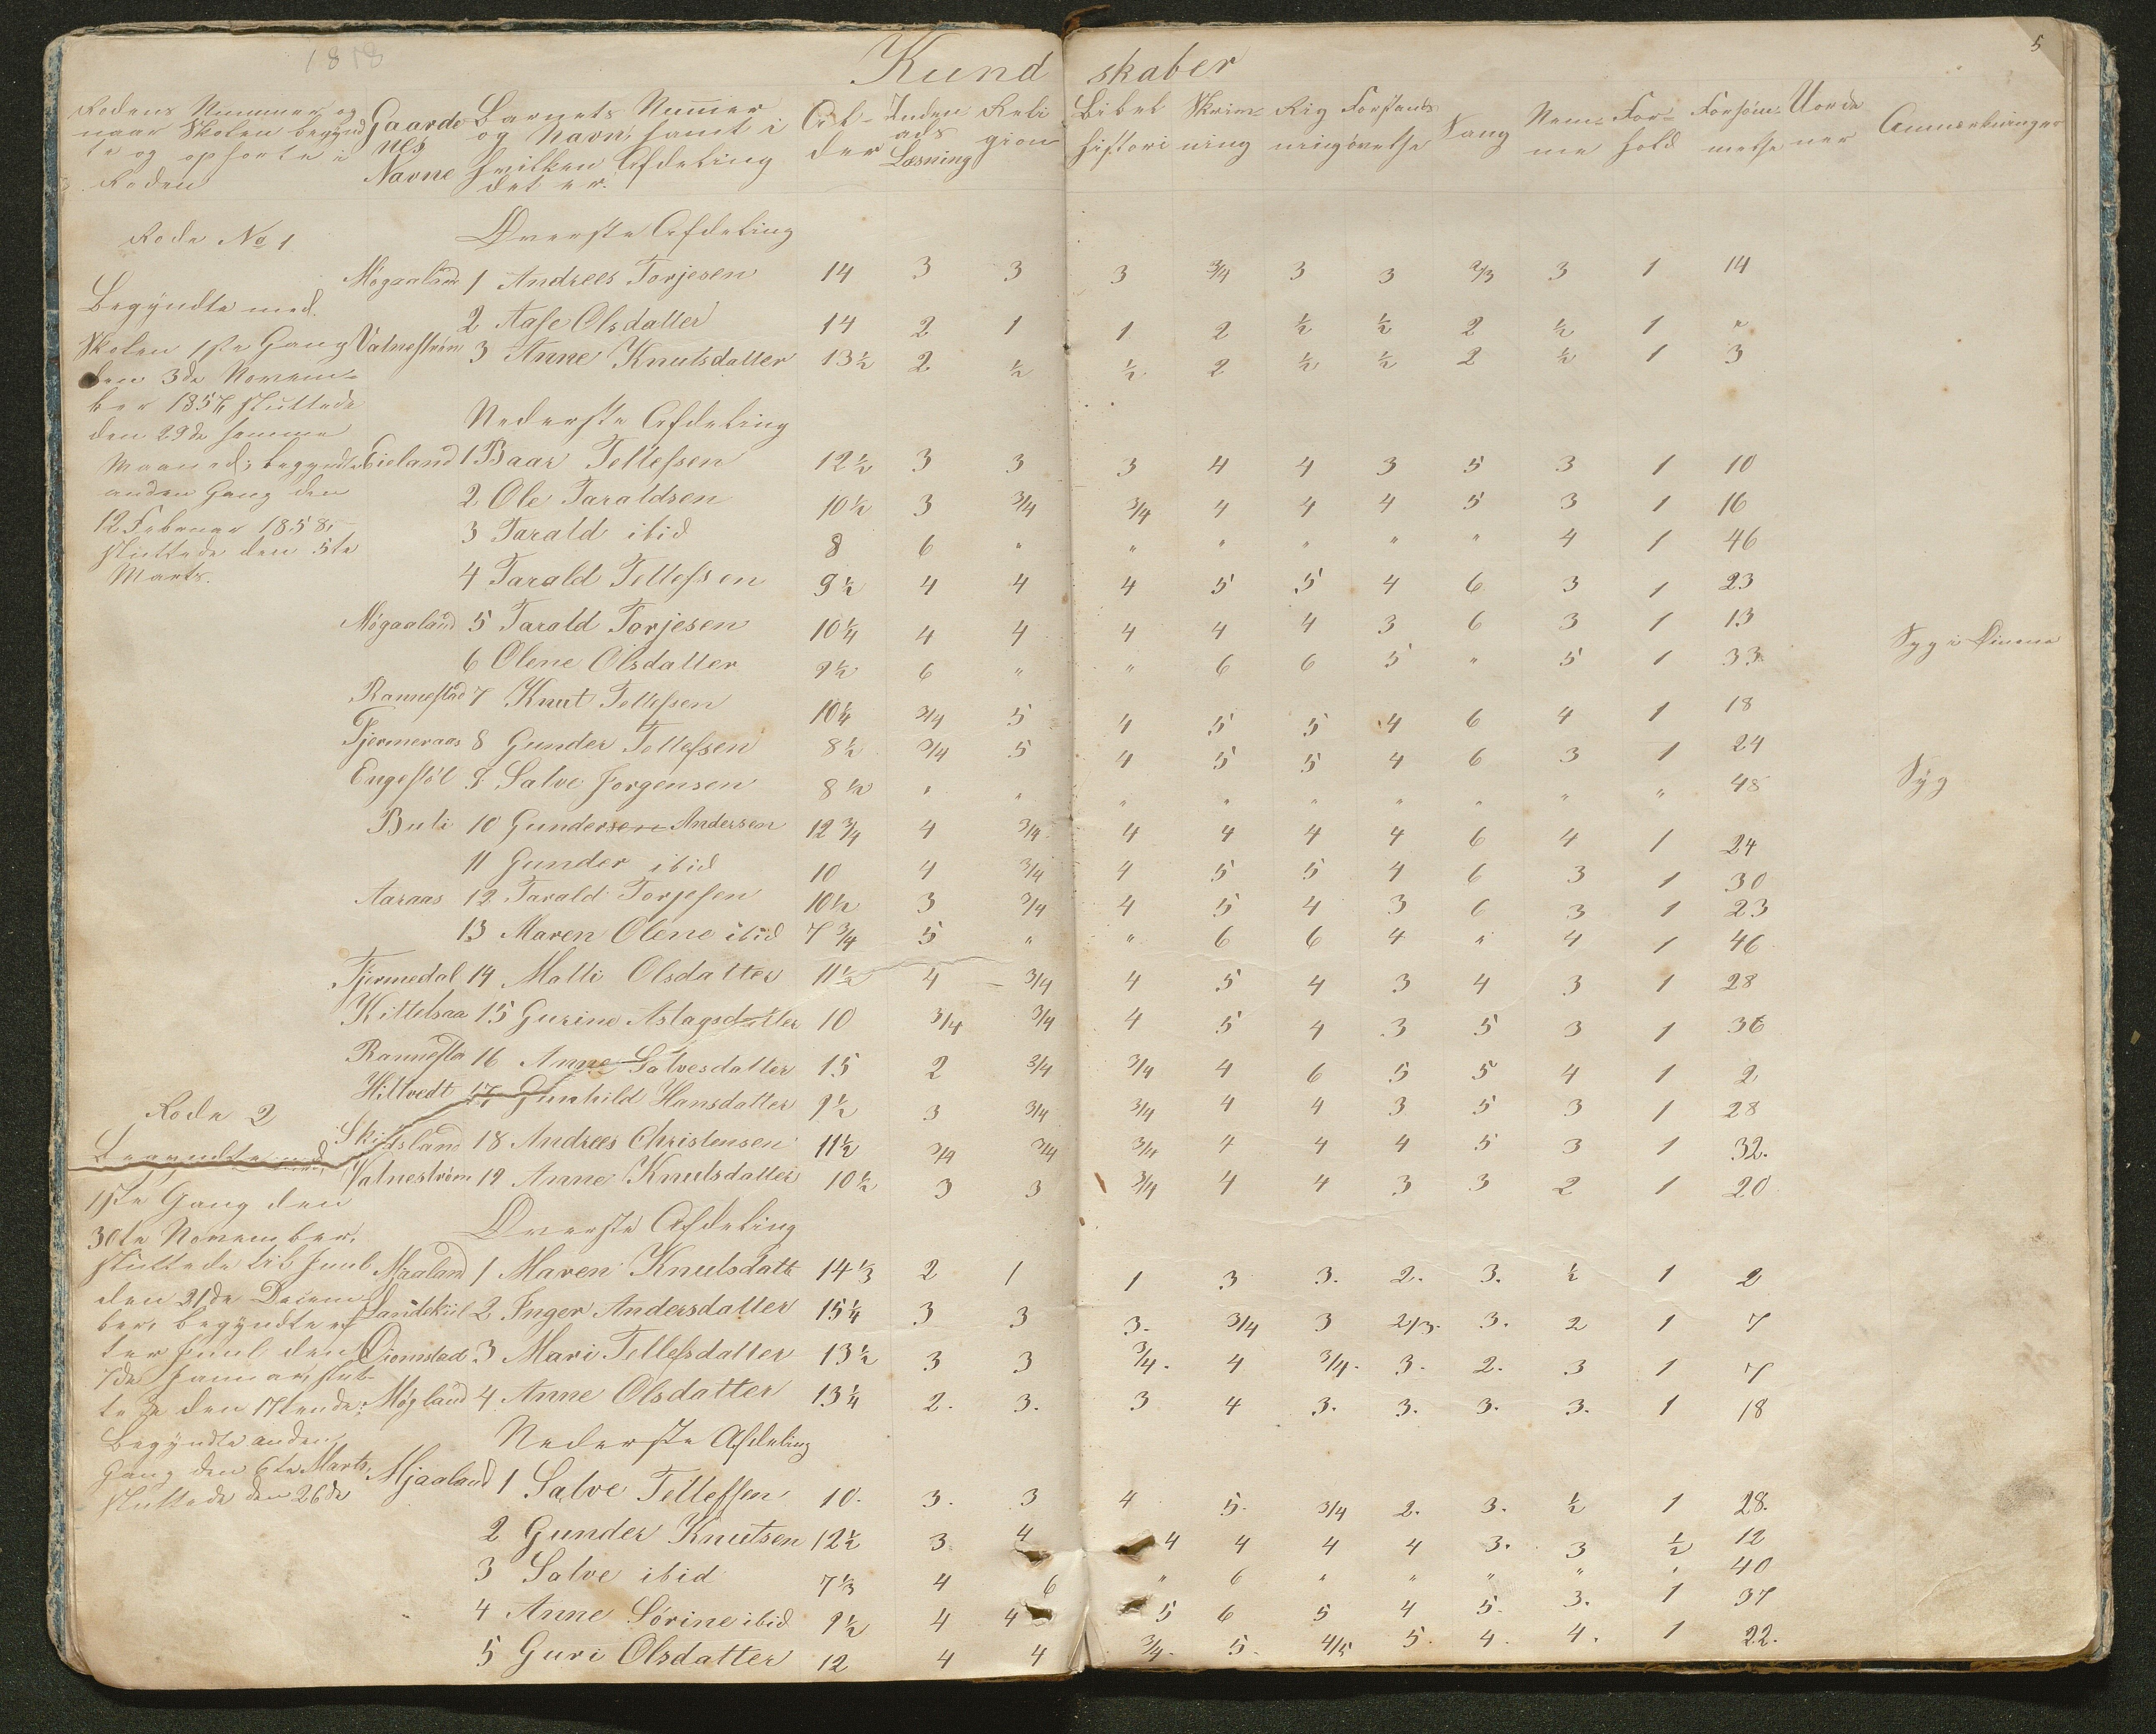 1818
5
Kundskaber
Rodens Nummer og naar Skolen begyndte og ophørte i Roden | Gaardenes Navne | Barnets Numer og Navn, samt i hvilken Afdeling det er. | Alder | Inden ads Læsning | Religion | Bibelhistori | Skrivning | Rigning | Forstandsøvelse | Sang | Nemme | Forhold | Forsømmelse | Uordener | Anmærkninger
Rode No 1
Begyndte med
Skolen 1ste Gang
den 3de Novem-
ber 1857, sluttede
den 29de samme
Maaned; begyndte
anden Gang den
12 Februar 1858,
sluttede den 5te
Marts.
Øverste Afdeling
Møgaaland 1 Andrees Torjesen 14 3 3 3 3/4 3 3 2/3 3 1 14
2 Aase Olsdatter 14 2 1 1 2 1/2 1/2 2 1/2 1 "
Vatnestrøm 3 Anne Knutsdatter 13 1/2 2 1/2 1/2 2 1/2 1/2 2 1/2 1 3
Nederste Afdeling
Eieland 1 Baar Tellefsen 12 1/2 3 3 3 4 4 3 5 3 1 10
2 Ole Taraldsen 10 1/2 3 3/4 3/4 4 4 4 5 3 1 16
3 Tarald ibid 8 6 " " " " " " 4 1 46
4 Tarald Tellefsen 9 1/2 4 4 4 5 5 4 6 3 1 23
Møgaaland 5 Tarald Torjesen 10 1/4 4 4 4 4 4 3 6 3 1 13
6 Olene Olsdatter 9 1/2 6 " " 6 6 5 " 5 1 33 Syg i Øinene
Rannestad 7 Knut Tellefsen 10 1/4 3/4 5 4 5 5 4 6 4 1 18
Fjermeraas 8 Gunder Tellefsen 8 1/2 3/4 5 4 5 5 4 6 3 1 24
Engestøl 9 Salve Jorgensen 8 1/2 " " " " " " " " " 48 Syg
Buli 10 Gundersen Andersen 12 3/4 4 3/4 4 4 4 4 6 4 1 24
11 Gunder ibid 10 4 3/4 4 5 5 4 6 3 1 30
Aaraas 12 Tarald Torjesen 10 1/2 3 3/4 4 5 4 3 6 3 1 23
13 Maren Olene ibid 7 3/4 5 " " 6 6 4 " 4 1 46
Fjermedal 14 Malli Olsdatter 11 1/2 4 3/4 4 5 4 3 4 3 1 28
Kittelsaa 15 Gurine Aslagsdatter 10 3/4 3/4 4 5 4 3 5 3 1 36
Rannesta 16 Anne Salvesdatter 15 2 3/4 3/4 4 6 5 5 4 1 2
Hiltvedt 17 Gunhild Hansdatter 9 1/2 3 3/4 3/4 4 4 3 5 3 1 28
Skiftsland 18 Andrees Christensen 11 1/2 3/4 3/4 3/4 4 4 4 5 3 1 32.
Vatnestrøm 19 Anne Knutsdatter 10 1/2 3 3 3/4 4 4 3 3 2 1 20
Rode 2
Begyndte med
1ste Gang den
30te November,
sluttede til Juul
den 21de Decem
ber, begyndte ef
ter Juul den
7de Januar, slut
tede den 17tende;
Begyndte anden
Gang den 6te Marts,
sluttede den 26de
Øverste Afdeling
Mjaaland 1 Maren Knutsdatt 14 1/3 2 1 1 3 3. 2. 3. 1/2 1 2
Landskiil 2 Inger Andersdatter 15 1/4 3 3 3. 3/4 3 2/3. 3. 2 1 7
Oiomstad 3 Mari Tellefsdatter 13 1/2 3 3 3/4. 4 3/4. 3. 2. 3 1 7
Møgland 4 Anne Olsdatter 13 1/4 2. 3. 3 4 3. 3. 3. 3. 1 18
Nederste Afdeling
Mjaaland 1 Salve Tellefsen 10. 3. 3 4 5. 3/4 2. 3. 1/2 1 28.
2 Gunder Knutsen 12 1/2 3 4 4 4 4 4 3. 3 1/2 12
3 Salve ibid 7 1/3 4 6 " 6 " " " " " 40
4 Anne Sørine ibid 9 1/2 4 4 5 6 5 4 5. 3. 1 37
5 Guri Olsdatter 12 4 4 3/4. 5. 4/5 5. 4. 4. 1 22.